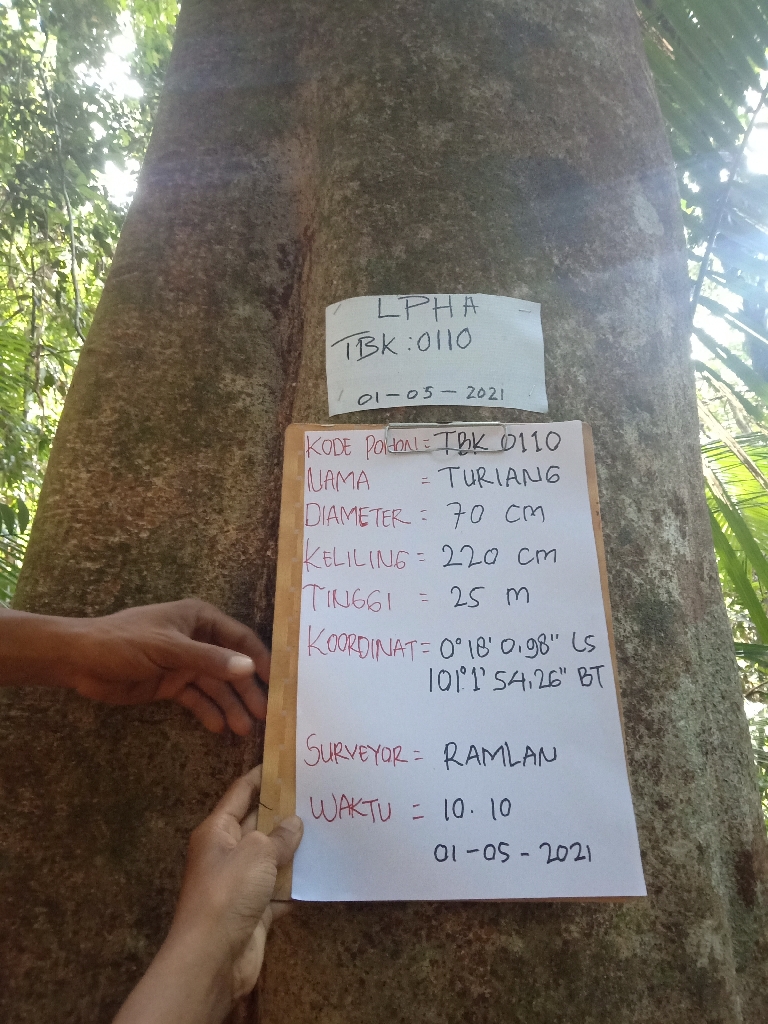 LPHA
TBK : 0110
01-05-2021
KODE POHON = TBK 0110
NAMA = TURIANG
DIAMETER = 70 CM
KELILING = 220 CM
TINGGI = 25 M
KOORDINAT = 0° 18' 0,98" LS
101° 1' 54,26" BT
SURVEYOR = RAMLAN
WAKTU = 10.10
01-05-2021